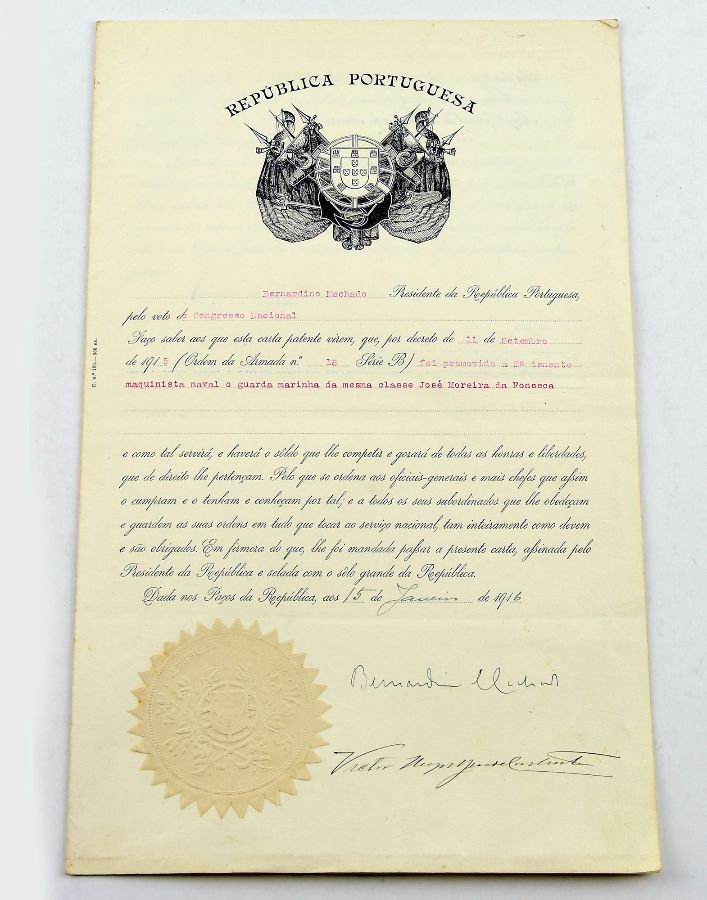 REPÚBLICA PORTUGUESA
Bernardino Machado Presidente da República Portuguesa,
pelo voto do Congresso Nacional
Faço saber aos que esta carta patente virem, que, por decreto de 11 de Setembro
de 1915 (Ordem da Armada n.º 18 Série B) foi promovido a 2º tenente
maquinista naval o guarda marinha da mesma classe José Moreira da Fonseca
e como tal servirá, e haverá o sôldo que lhe competir e gorará de todas as honras e liberdades,
que de direito lhe pertençam. Pelo que se ordena aos oficiais-generais e mais chefes que assim
o cumpram e o tenham e conheçam por tal; e a todos os seus subordinados que lhe obedeçam
e guardem as suas ordens em tudo que tocar ao serviço nacional, tam inteiramente como devem
e são obrigados. Em firmera do que, lhe foi mandada passar a presente carta, assinada pelo
Presidente da República e selada com o sêlo grande da República.
Dada nos Paços da República, aos 15 de Janeiro de 1916
Bernardino Machado
Victor Hugo de Azevedo Coutinho